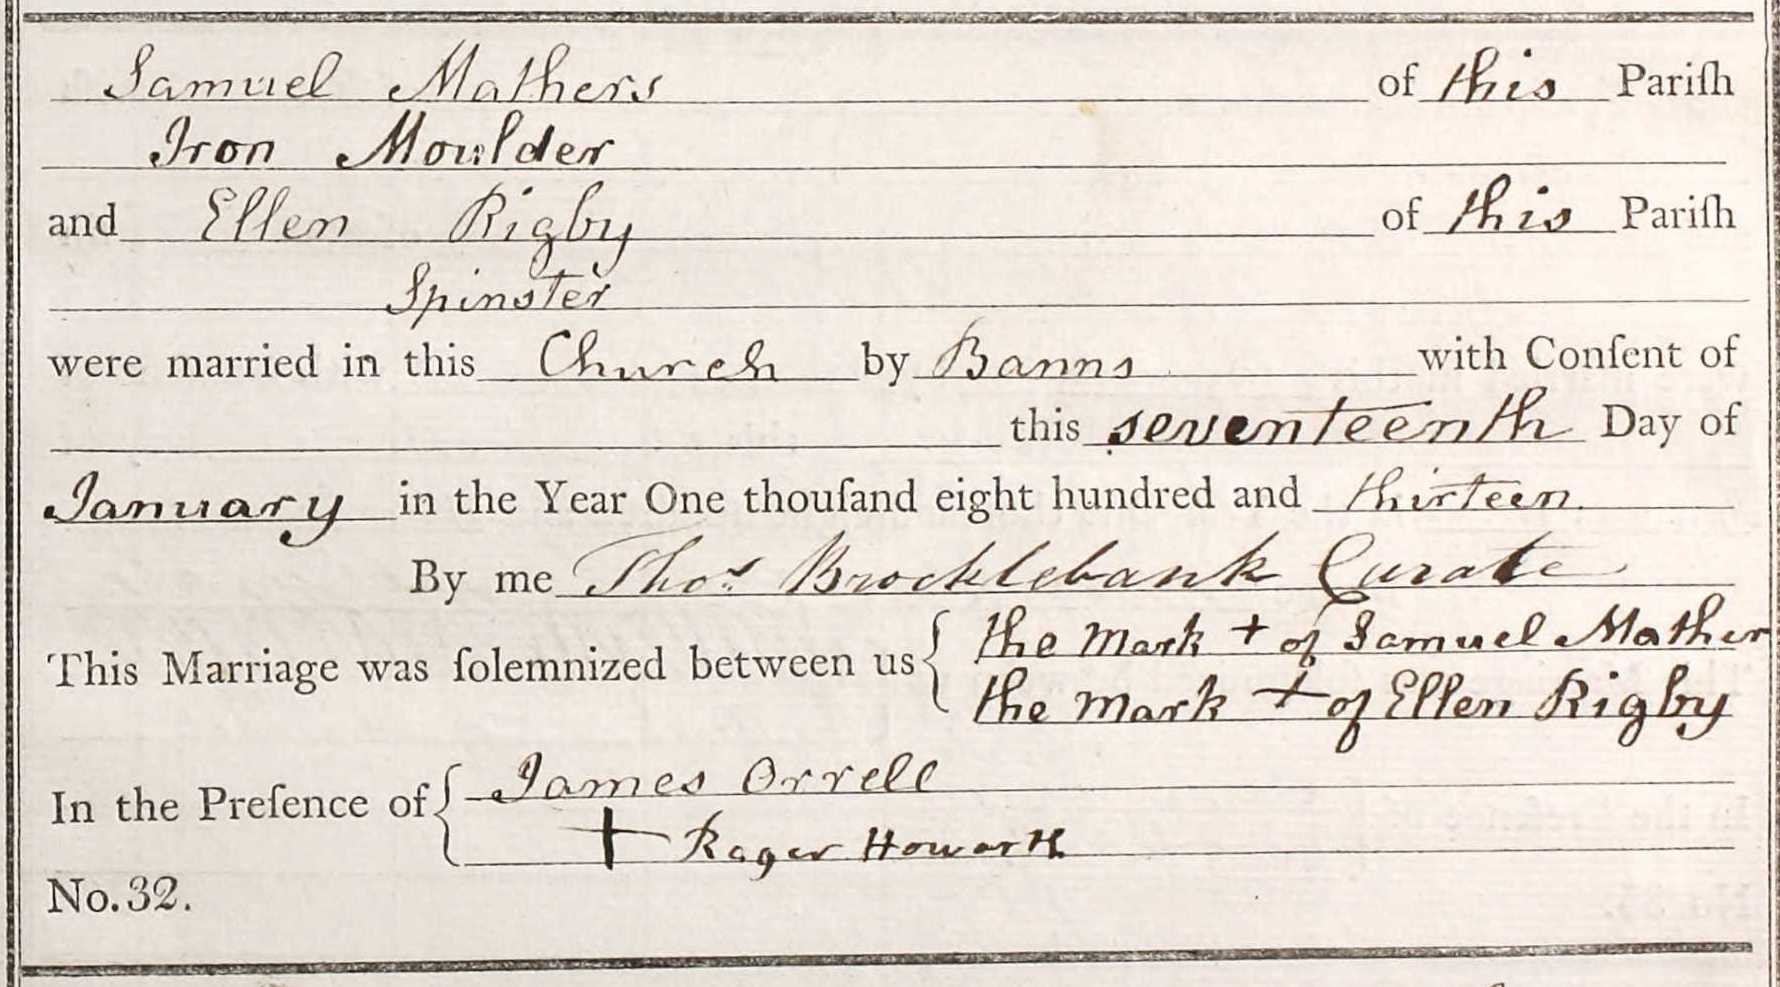 Samuel Mathers of this Pariſh
Iron Moulder
and Ellen Rigby of this Pariſh
Spinster
were married in this Church by Banns with Conſent of
this seventeenth Day of
January in the Year One thouſand eight hundred and thirteen
By me Thos. Brocklebank Curate
This Marriage was ſolemnized between us { the mark + of Samuel Mather
the mark + of Ellen Rigby
In the Preſence of { James Orrell
+ Roger Howarth
No. 32.